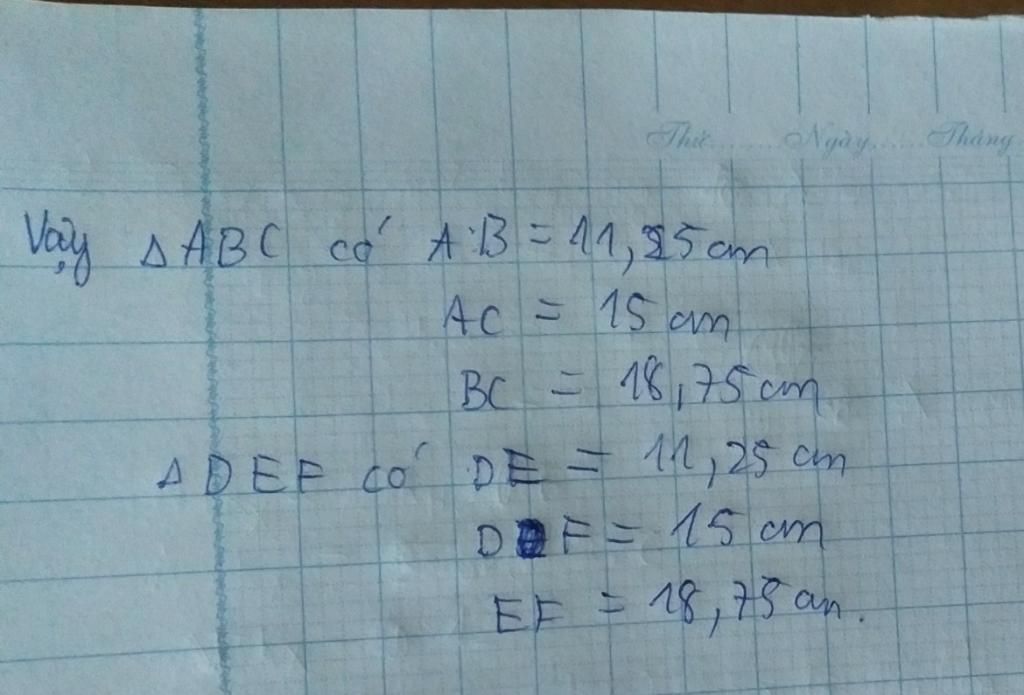 Thứ........Ngày......Tháng
Vậy △ABC có AB = 11,25 cm
AC = 15 cm
BC = 18,75 cm
△DEF có DE = 11,25 cm
DF = 15 cm
EF = 18,75 cm.